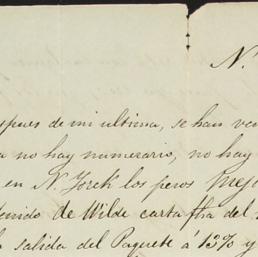 N.
spues de mi ultima, se han ven
no hay numerario, no hay
en N. York los pesos Meji
enido de Wilde carta fha del
la salida del Paquete á 15% y